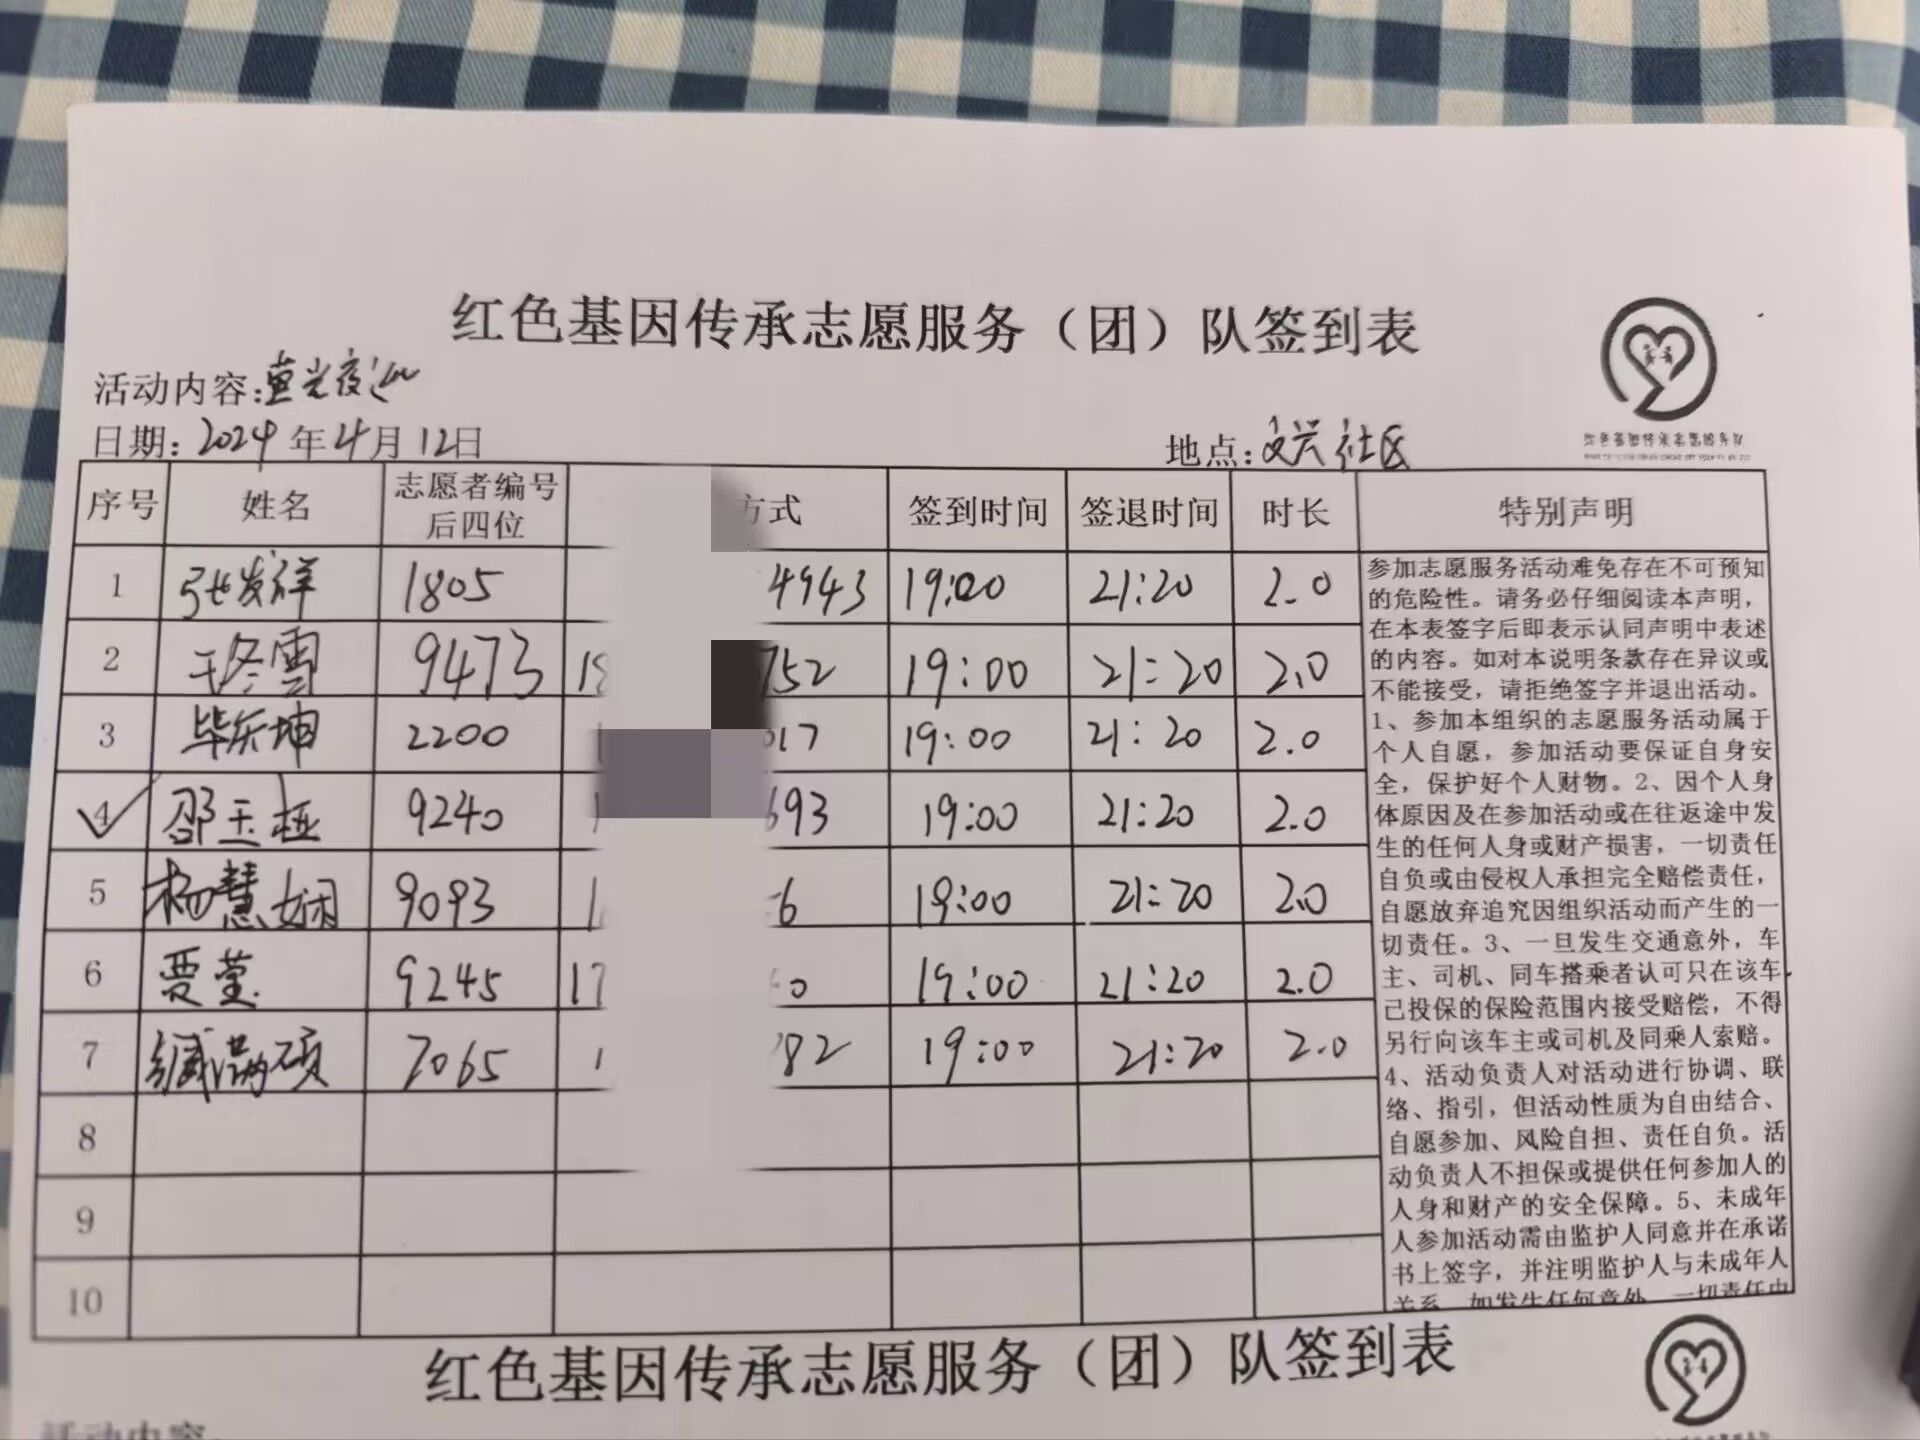 红色基因传承志愿服务（团）队签到表
活动内容:萤光夜巡
日期:2024年4月12日
地点:文兴社区
序号 姓名 志愿者编号后四位 方式 签到时间 签退时间 时长 特别声明
1 张发祥 1805 4943 19:00 21:20 2.0
2 于冬雪 9473 752 19:00 21:20 2.0
3 毕东坤 2200 017 19:00 21:20 2.0
4 邵玉 9240 693 19:00 21:20 2.0
5 杨慧娴 9093 6 19:00 21:20 2.0
6 贾莹 9245 17 0 19:00 21:20 2.0
7 臧满硕 7065 82 19:00 21:20 2.0
8
9
10
参加志愿服务活动难免存在不可预知
的危险性。请务必仔细阅读本声明，
在本表签字后即表示认同声明中表述
的内容。如对本说明条款存在异议或
不能接受，请拒绝签字并退出活动。
1、参加本组织的志愿服务活动属于
个人自愿，参加活动要保证自身安
全，保护好个人财物。2、因个人身
体原因及在参加活动或在往返途中发
生的任何人身或财产损害，一切责任
自负或由侵权人承担完全赔偿责任，
自愿放弃追究因组织活动而产生的一
切责任。3、一旦发生交通意外，车
主、司机、同车搭乘者认可只在该车
己投保的保险范围内接受赔偿，不得
另行向该车主或司机及同乘人索赔。
4、活动负责人对活动进行协调、联
络、指引，但活动性质为自由结合、
自愿参加、风险自担、责任自负。活
动负责人不担保或提供任何参加人的
人身和财产的安全保障。5、未成年
人参加活动需由监护人同意并在承诺
书上签字，并注明监护人与未成年人
关系，如发生任何意外，一切责任由
红色基因传承志愿服务（团）队签到表
活动内容: